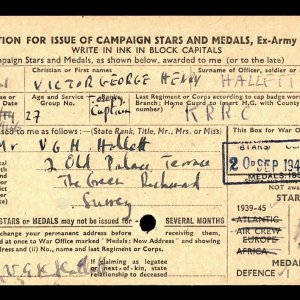 TION FOR ISSUE OF CAMPAIGN STARS AND MEDALS, Ex-Army
WRITE IN INK IN BLOCK CAPITALS
mpaign Stars and Medals, as shown below, awarded to me (or to the late)
Christian or first names
Surname of Officer, soldier or
VICTOR GEORGE HENRY
HALLETT
Age and Service
Group No.
27
Captain
Last Regiment or Corps according to cap badge worn
Branch: Home Guard to insert H.G. with County
KRRC
sed to me as follows:— (State Rank, Title, Mr., Mrs. or Miss)
This Box for War
Mr V G H Hallett
STARS
2 Old Palace Terrace
20 SEP 194
The Green Richmond
MEDALS
Surrey
STAR
1939-45
ATLANTIC
AIR CREW
EUROPE
AFRICA
STARS or MEDALS may not be issued for
SEVERAL MONTHS
change your permanent address before
receiving them,
d at once to War Office marked "Medals: New Address" and showing
ii) your No., name and last Regiment or Corps.
MEDA
DEFENCE
If claiming as legatee
or next-of-kin, state
relationship to deceased